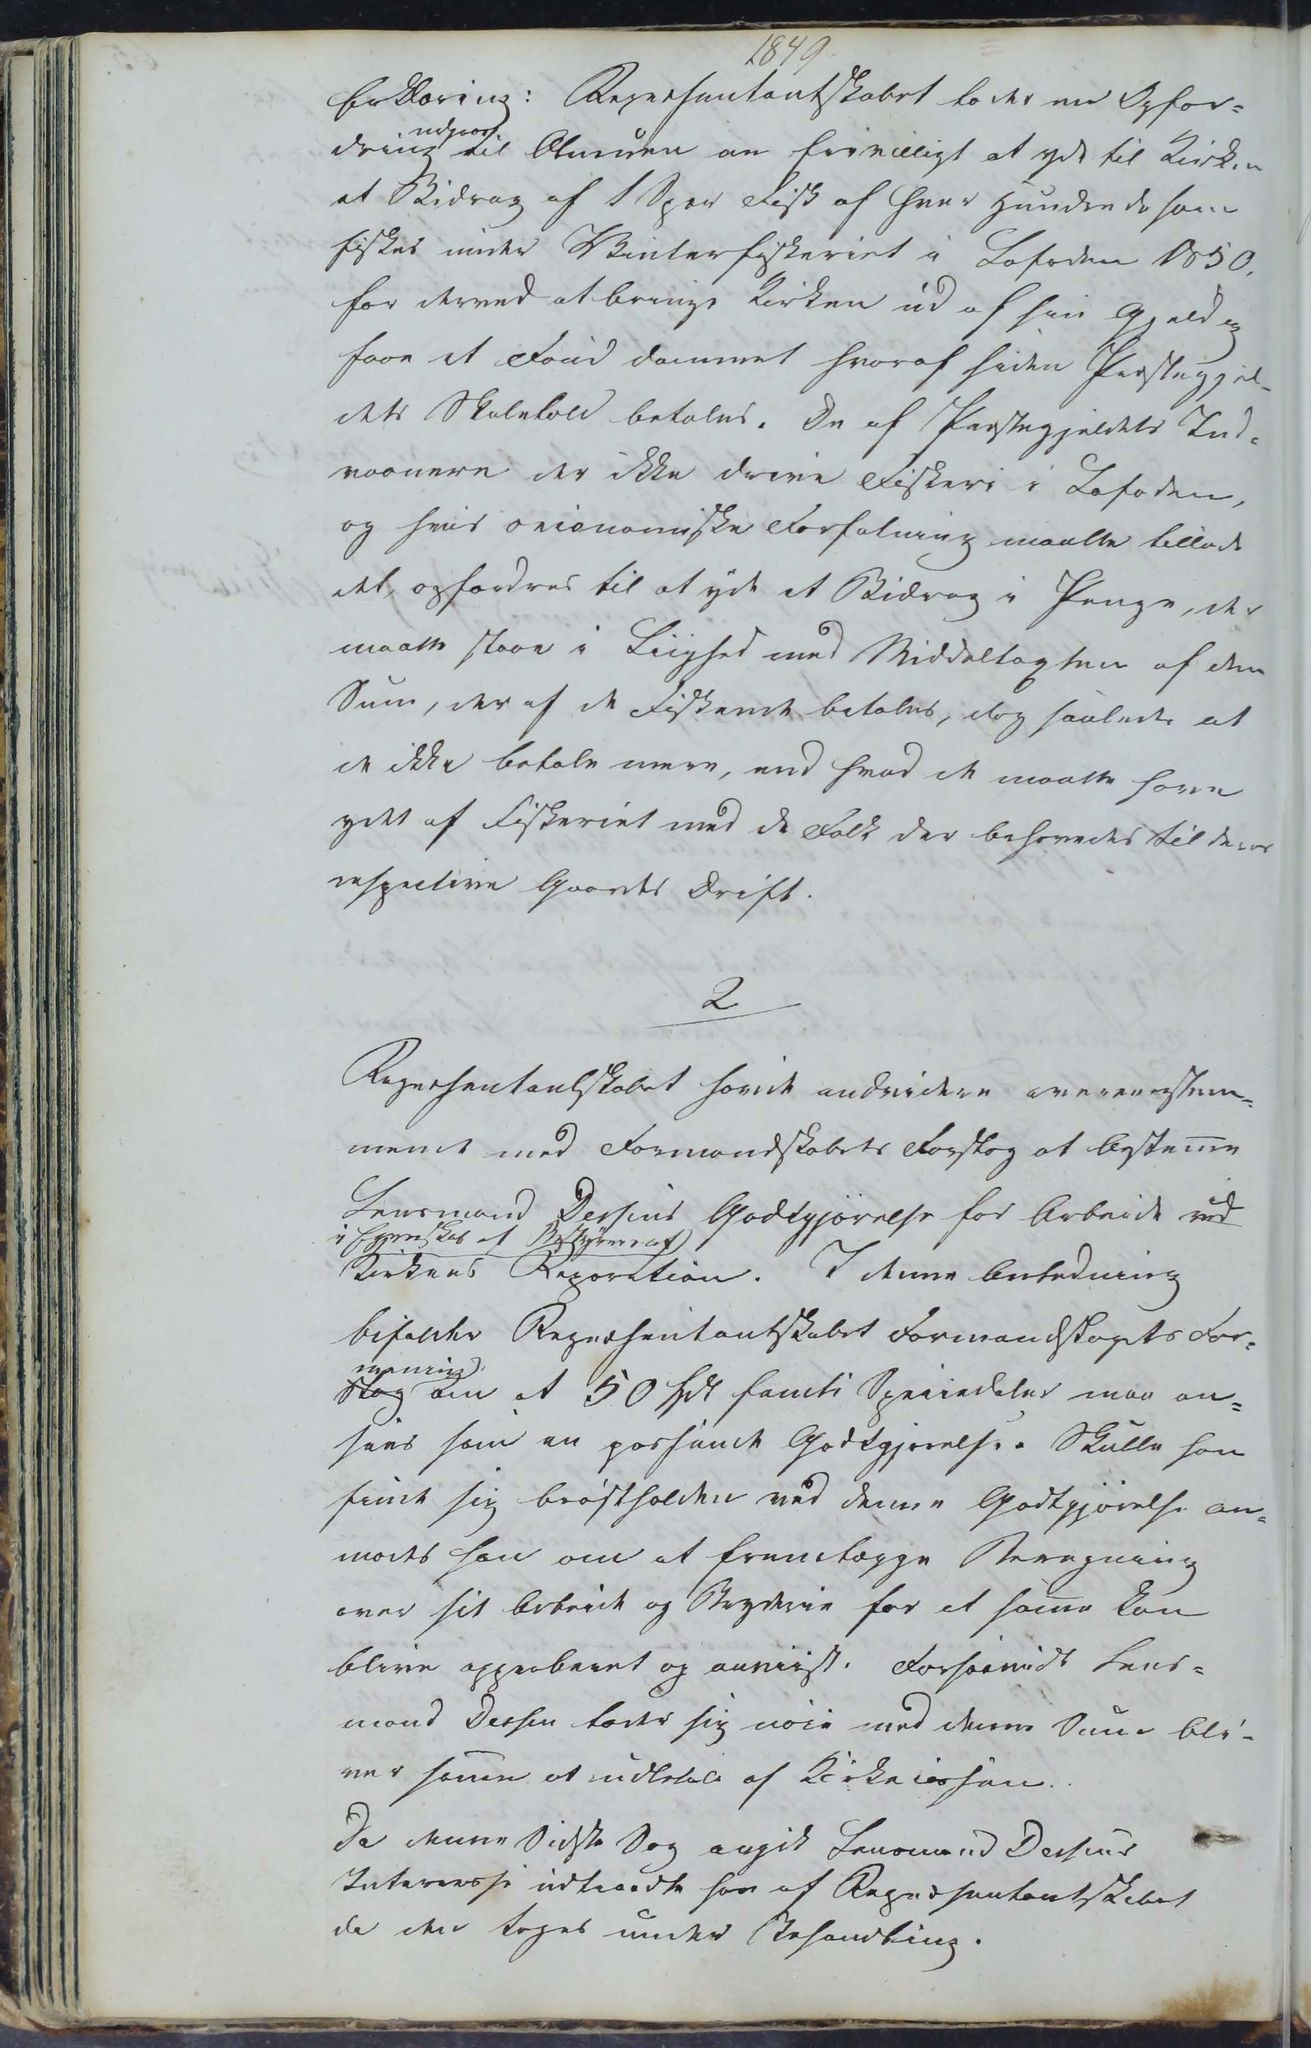 1849.
Erklæring: Repræsentantskabet lader en Opfor-
udgaae
dring til Almuen om frivilligt at yde til Kirken
et Bidrag af 1 Spær Fisk af hver Hundrede som
fiskes under Vinterfiskeriet i Lofoden 1850,
for derved at bringe Kirken ud af sin Gjæld og
faae et Fond dannet hvoraf siden Præstegjel-
dets Skolehold betales. De af Præstegjeldets Ind-
vaanere der ikke drive Fiskeri i Lofoden,
og hvis oeconomiske Forfatning maatte tillade
det, opfordres til at yde et Bidrag i Penge, der
maatte staae i Liighed med Middeltagsten af den
Sum, der af de Fiskende betales, dog saaledes at
de ikke betale mere, end hvad de maatte have
ydet af Fiskeriet med de Folk der behøvedes til deres
respective Gaards Drift.
2
Repræsentantskabet havde endvidere overeenstem-
mende med Formandskabets Forslag at bestemme
Lensmand Dessens Godtgjörelse for Arbeide ved
i Egenskab af Bestyrer af
Kirkens Reparation. I denne Anledning
bifaldte Repræsentantskabet Formandskapets For-
mening
slag om at 50 Spd femti Speciedaler maa an-
sees som en passende Godtgjørelse. Skulle han
finde sig bröstholden ved denne Godtgjörelse an-
modes han om at fremlægge Beregning
over sit Arbeide og Bryderie for at samme kan
blive approberet og anviist. Forsaavidt Lens-
mand Dessen lader sig nöie med denne Sum bli-
ver samme at udbetale af Kirkecassen.
Da denne Sidste Sag angik Lensmand Dessens
Interesse udtraadte han af Repræsentantskabet
da den toges under Behandling.